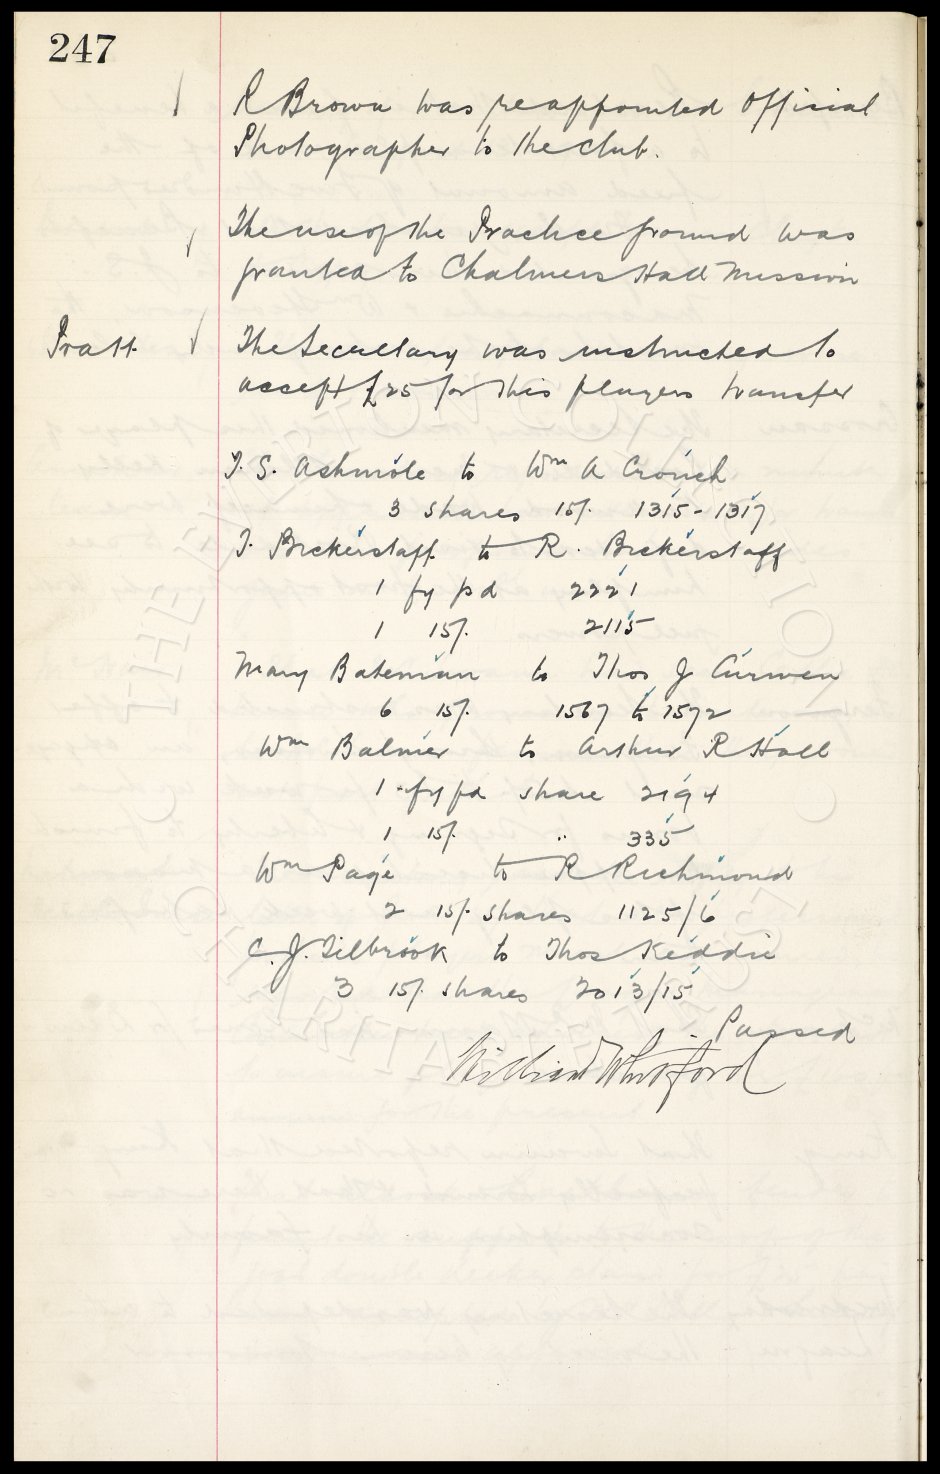 247
R Brown was reappointed Official
Photographer to the club.
The use of the Practice ground was
granted to Chalmers Hall Mission
Pratt
The Secretary was instructed to
accept £25 for this players transfer
T. S. Ashmole to Wm A Crouch
3 shares 15/. 1315 - 1317
T. Bickerstaff to R. Bickerstaff
1 fy pd 2221
1 15/. 2115
Mary Bateman to Thos J Curwen
6 15/. 1567 to 1572
Wm Balmer to Arthur R Hall
1 fy pd share 2194
1 15/. " 335
Wm Page to R Richmond
2 15/. shares 1125/6
C. J. Tilbrook to Thos Keddie
3 15/. shares 2013/15
Passed
William Whitford